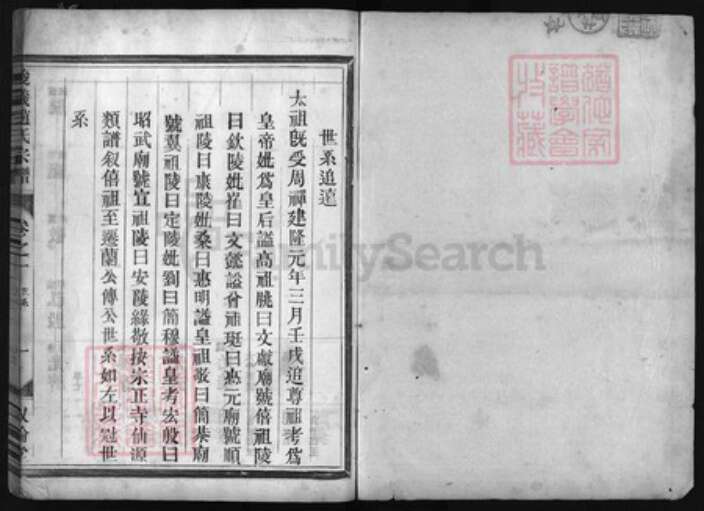 世系追遠
太祖既受周禪建隆元年三月壬戌追尊祖考為
皇帝妣為皇后謚高祖朓曰文獻廟號僖祖陵
曰欽陵妣崔曰文懿謚曾祖珽曰惠元廟號順
祖陵曰康陵妣桑曰惠明謚皇祖敬曰簡恭廟
號翼祖陵曰定陵妣劉曰簡穆謚皇考宏殷曰
昭武廟號宣祖陵曰安陵緣敬按宗正寺仙源
類譜叙僖祖至遷蘭公傳公世系如左以冠世
系
趙氏宗譜
卷之一
FamilySearch
譜學會
藏